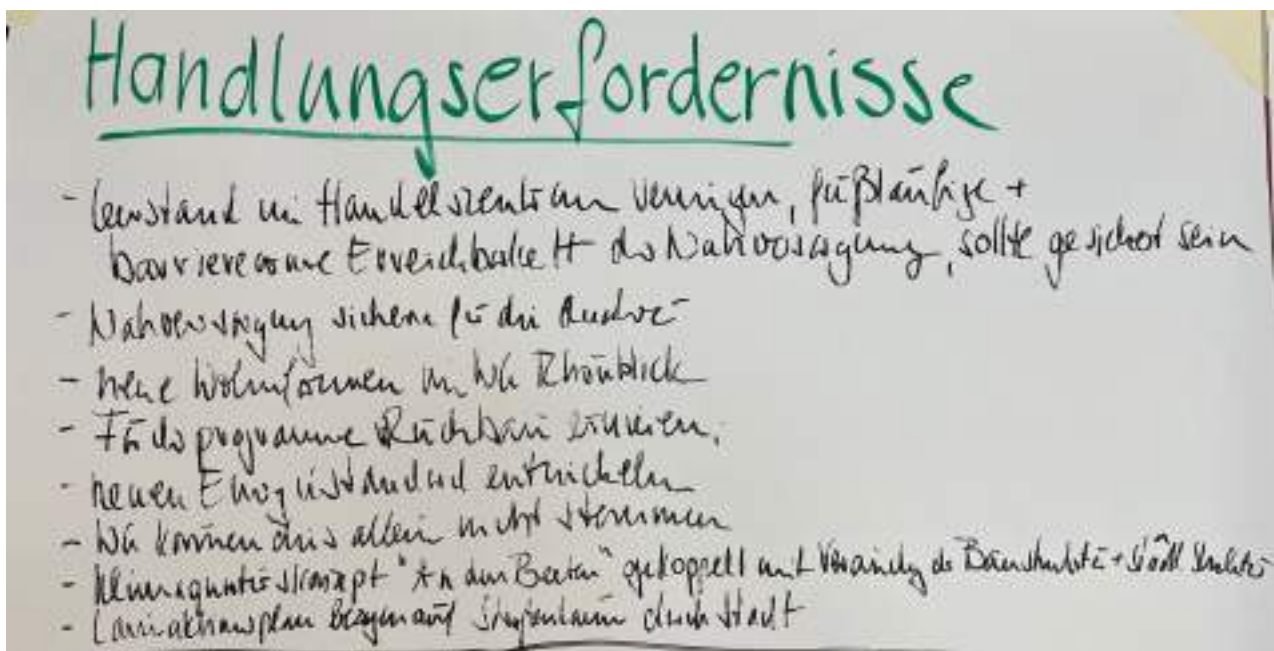 Handlungserfordernisse
- Leerstand im Handelszentrum verringern, fußläufige +
barrierearme Erreichbarkeit der Nahversorgung, sollte gesichert sein
- Nahversorgung sichern für die
- neue Wohnformen im WG Rhönblick
- Förderprogramme Rückbau
- neuen Energiestandard entwickeln
- Wir können dies allein nicht stemmen
- "An den Beeten" gekoppelt mit Veränderung der Baustruktur +
- Lärmaktionsplan bezogen auf Straßenlärm durch Stadt